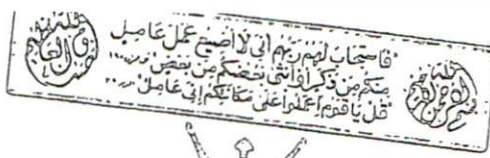 بسم الله الرحمن الرحيم
فاستجاب لهم ربهم أني لا أضيع عمل عامل
منكم من ذكر أو أنثى بعضكم من بعض
قل يا قوم اعملوا على مكانتكم إني عامل
صدق الله العظيم